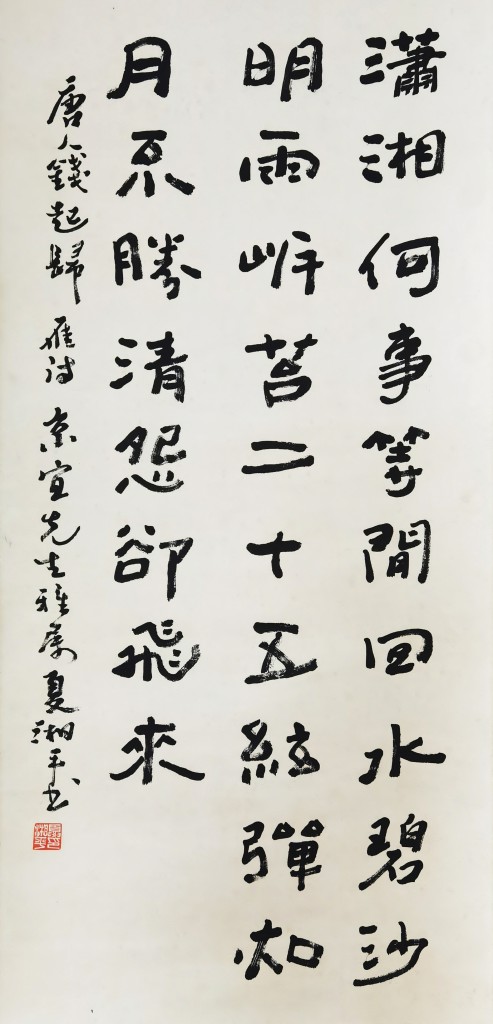 瀟湘何事等閒回水碧沙
明兩岸苔二十五絃彈夜
月不勝清怨卻飛來
唐人錢起歸雁詩 京宣先生雅屬夏湘平書